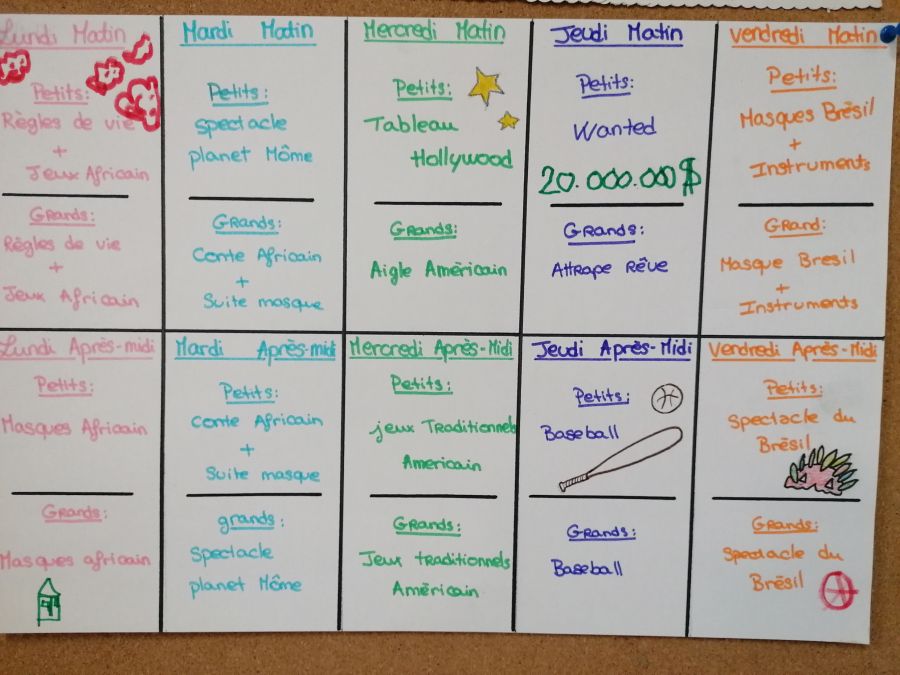 Lundi Matin
Petits:
Règles de vie
+
Jeux Africain
Grands:
Règles de vie
+
Jeux Africain
Mardi Matin
Petits:
Spectacle
planet Môme
Grands:
Conte Africain
+
Suite masque
Mercredi Matin
Petits:
Tableau
Hollywood
Grands:
Aigle Américain
Jeudi Matin
Petits:
Wanted
20.000.000$
Grands:
Attrape Rêve
Vendredi Matin
Petits:
Masques Brésil
+
Instruments
Grand:
Masque Bresil
+
Instruments
Lundi Après-midi
Petits:
Masques Africain
Grands:
Masques africain
Mardi Après-midi
Petits:
Conte Africain
+
Suite masque
grands:
Spectacle
planet Môme
Mercredi Après-Midi
Petits:
jeux Traditionnels
Americain
Grands:
Jeux traditionnels
Américain
Jeudi Après-Midi
Petits:
Baseball
Grands:
Baseball
Vendredi Après-Midi
Petits:
Spectacle du
Brésil
Grands:
Spectacle du
Brésil